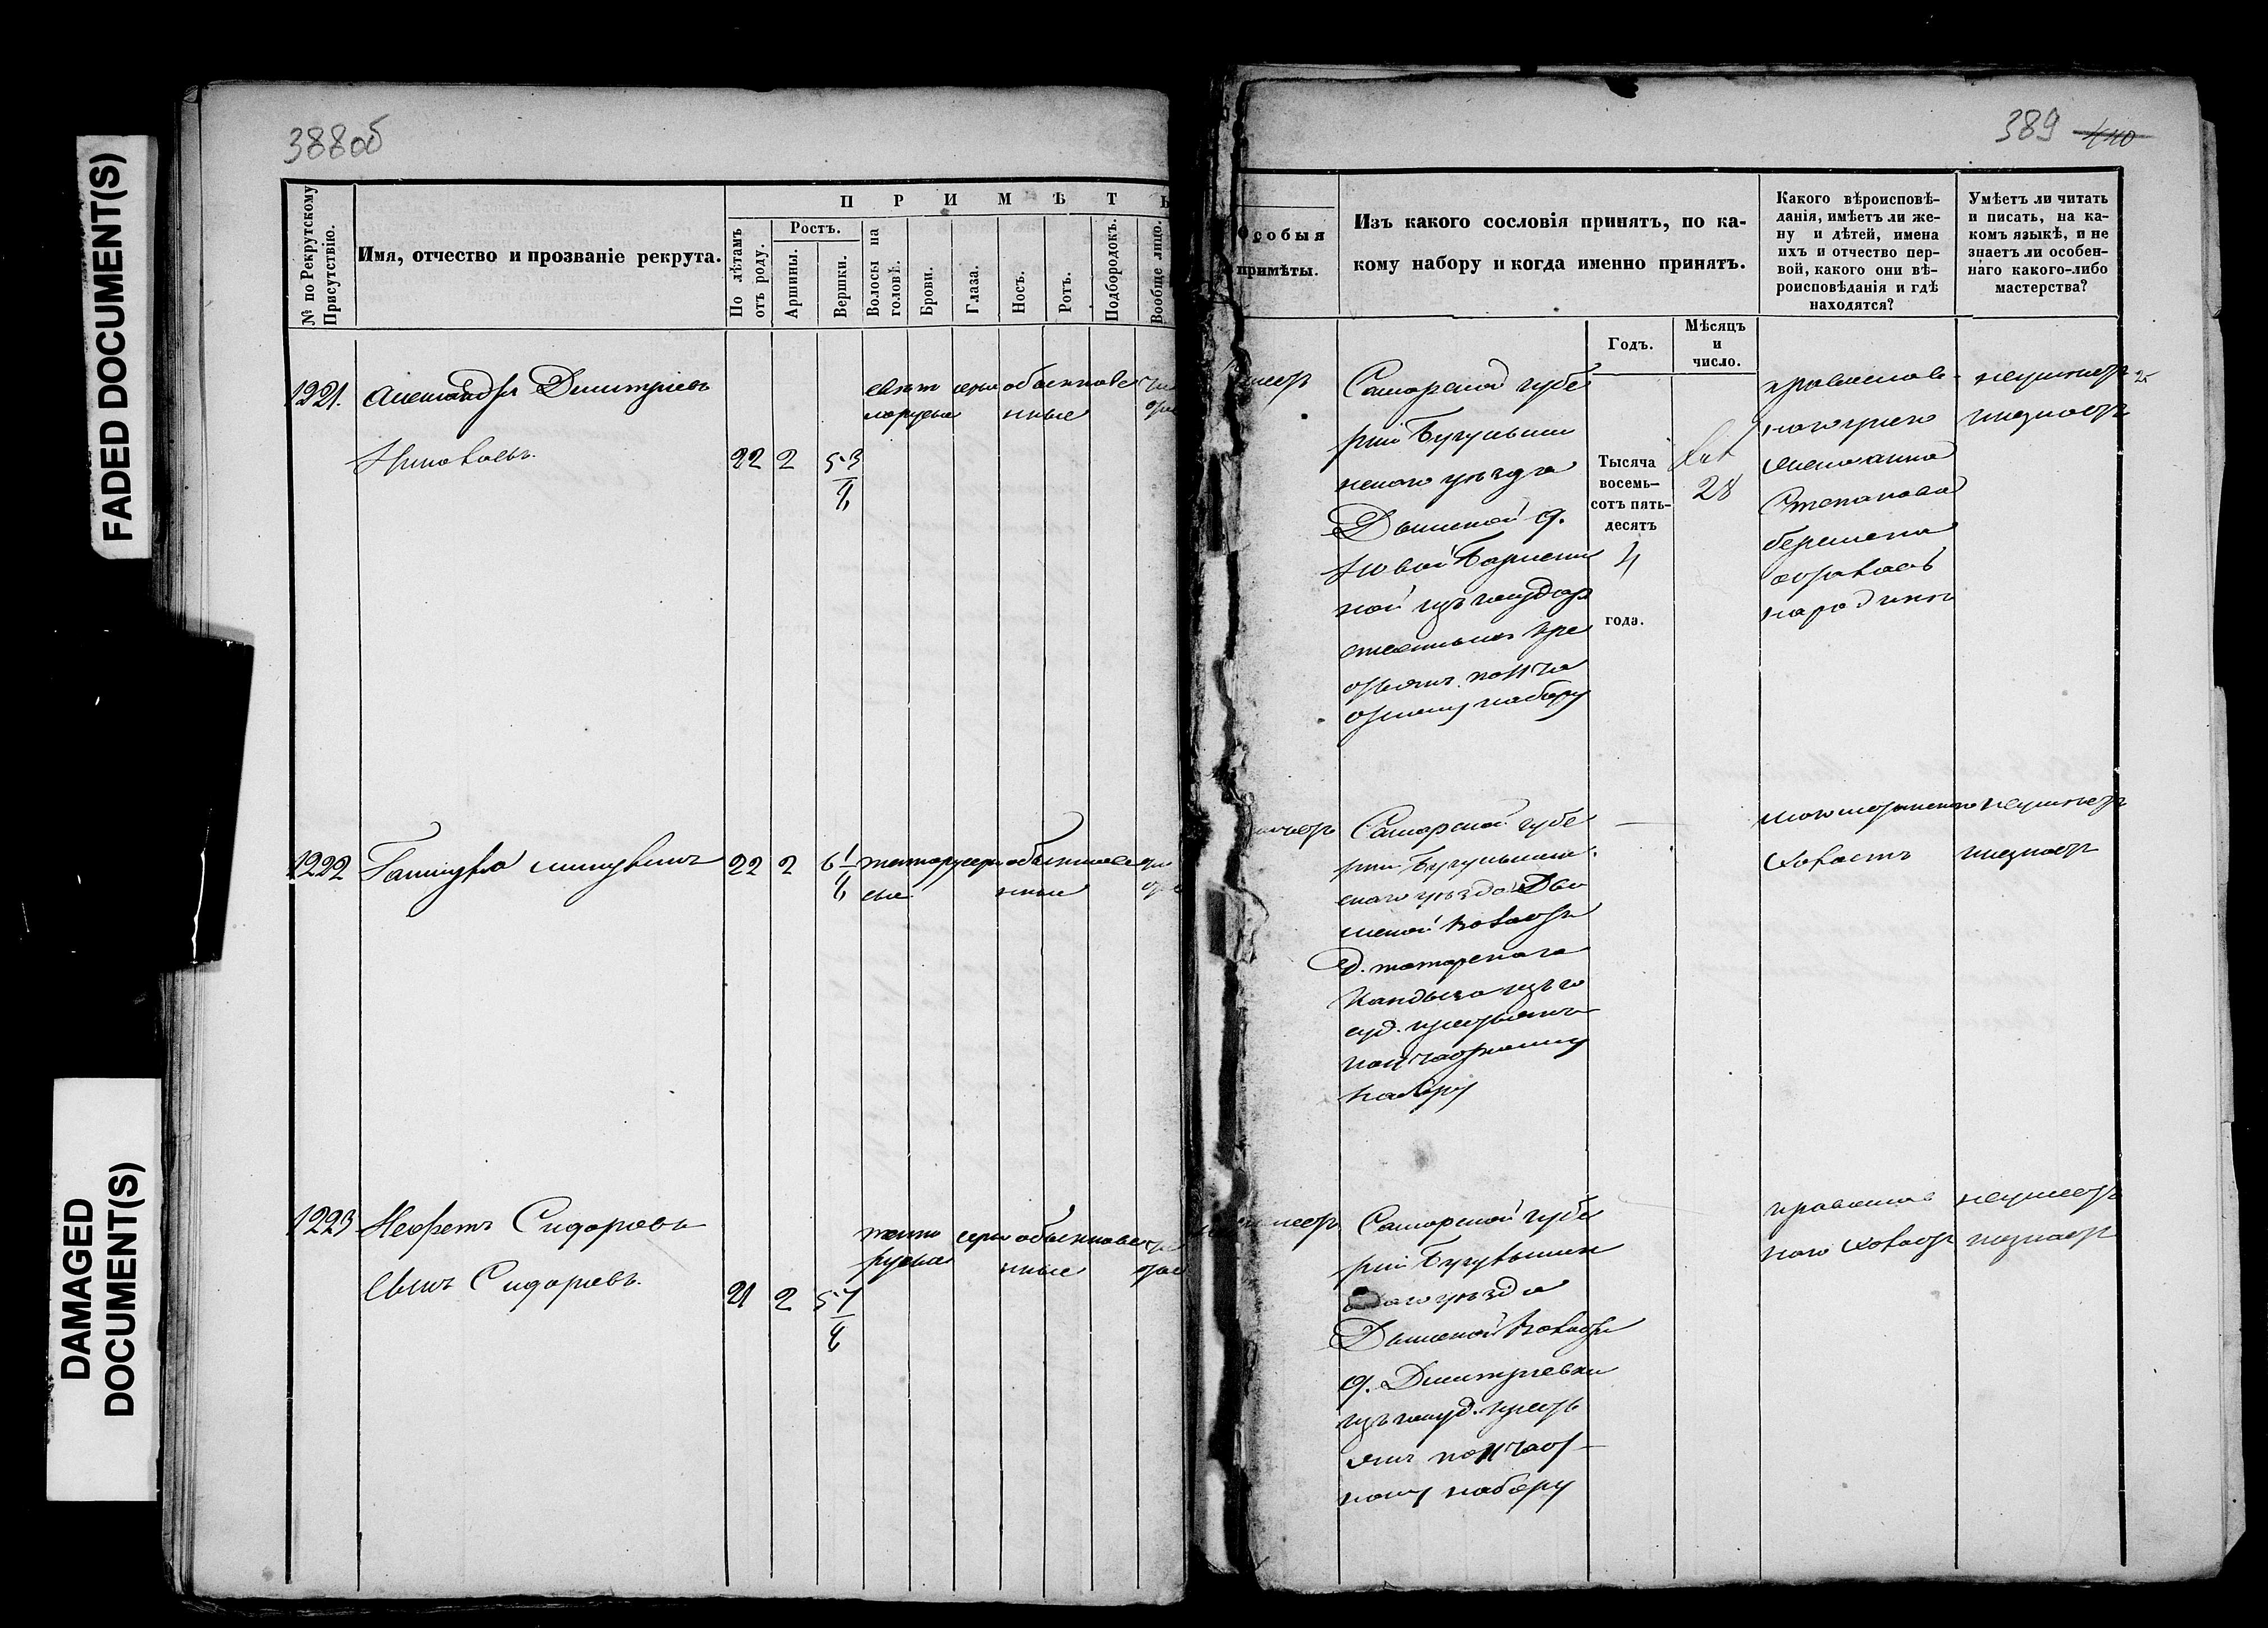 FADED DOCUMENT(S)
DAMAGED
DOCUMENT(S)
388об
№ по Рекрутскому
Присутствію.
Имя, отчество и прозваніе рекрута.
По лѣтамъ
отъ роду.
П Р И М Ѣ Т Ы
Ростъ.
Аршины.
Вершки.
Волосы на
головѣ.
Брови.
Глаза.
Носъ.
Ротъ.
Подбородокъ.
Вообще лицо.
1221. Александръ Дмитріевъ
светлорусые
серые
обыкновенные
22 2 5 3/8
1222 22 2 6 1/8
темнорусые
серые
обыкновенные
1223 Сидоровъ
Сидоровъ.
темнорусые
серые
обыкновенные
21 2 5 7/8
389 440
Особыя
примѣты.
Изъ какого сословія принятъ, по ка-
кому набору и когда именно принятъ.
Годъ.
Мѣсяцъ
и
число.
Какого вѣроисповѣ-
данія, имѣетъ ли же-
ну и дѣтей, имена
ихъ и отчество пер-
вой, какого они вѣ-
роисповѣданія и гдѣ
находятся?
Умѣетъ ли читать
и писать, на ка-
комъ языкѣ, и не
знаетъ ли особен-
наго какого-либо
мастерства?
Самарской губе
рніи Бугульмин
скаго уѣзда
Дымской д.
Новой
ной изъ государ
ственныхъ кре
стьянъ по 11 ча
стному набору
Тысяча
восемь-
сотъ пять-
десятъ
4
года.
28
православ
наго женат
Степанова
беремена
осталась
на родине
неумеет
незнает
Самарской губе
рніи Бугульмин
скаго уѣзда Ды
мской волости
д. татарскаго
Кандыза изъ го
суд. крестьянъ
по 11 частному
набору
магометанскаго
холостъ
неумеет
незнает
Самарской губе
рніи Бугульмин
скаго уѣзда
Дымской волости
д. Дмитріевки
изъ госуд. кресть
янъ по 11 част
ному набору
православ
наго холост
неумеет
незнает